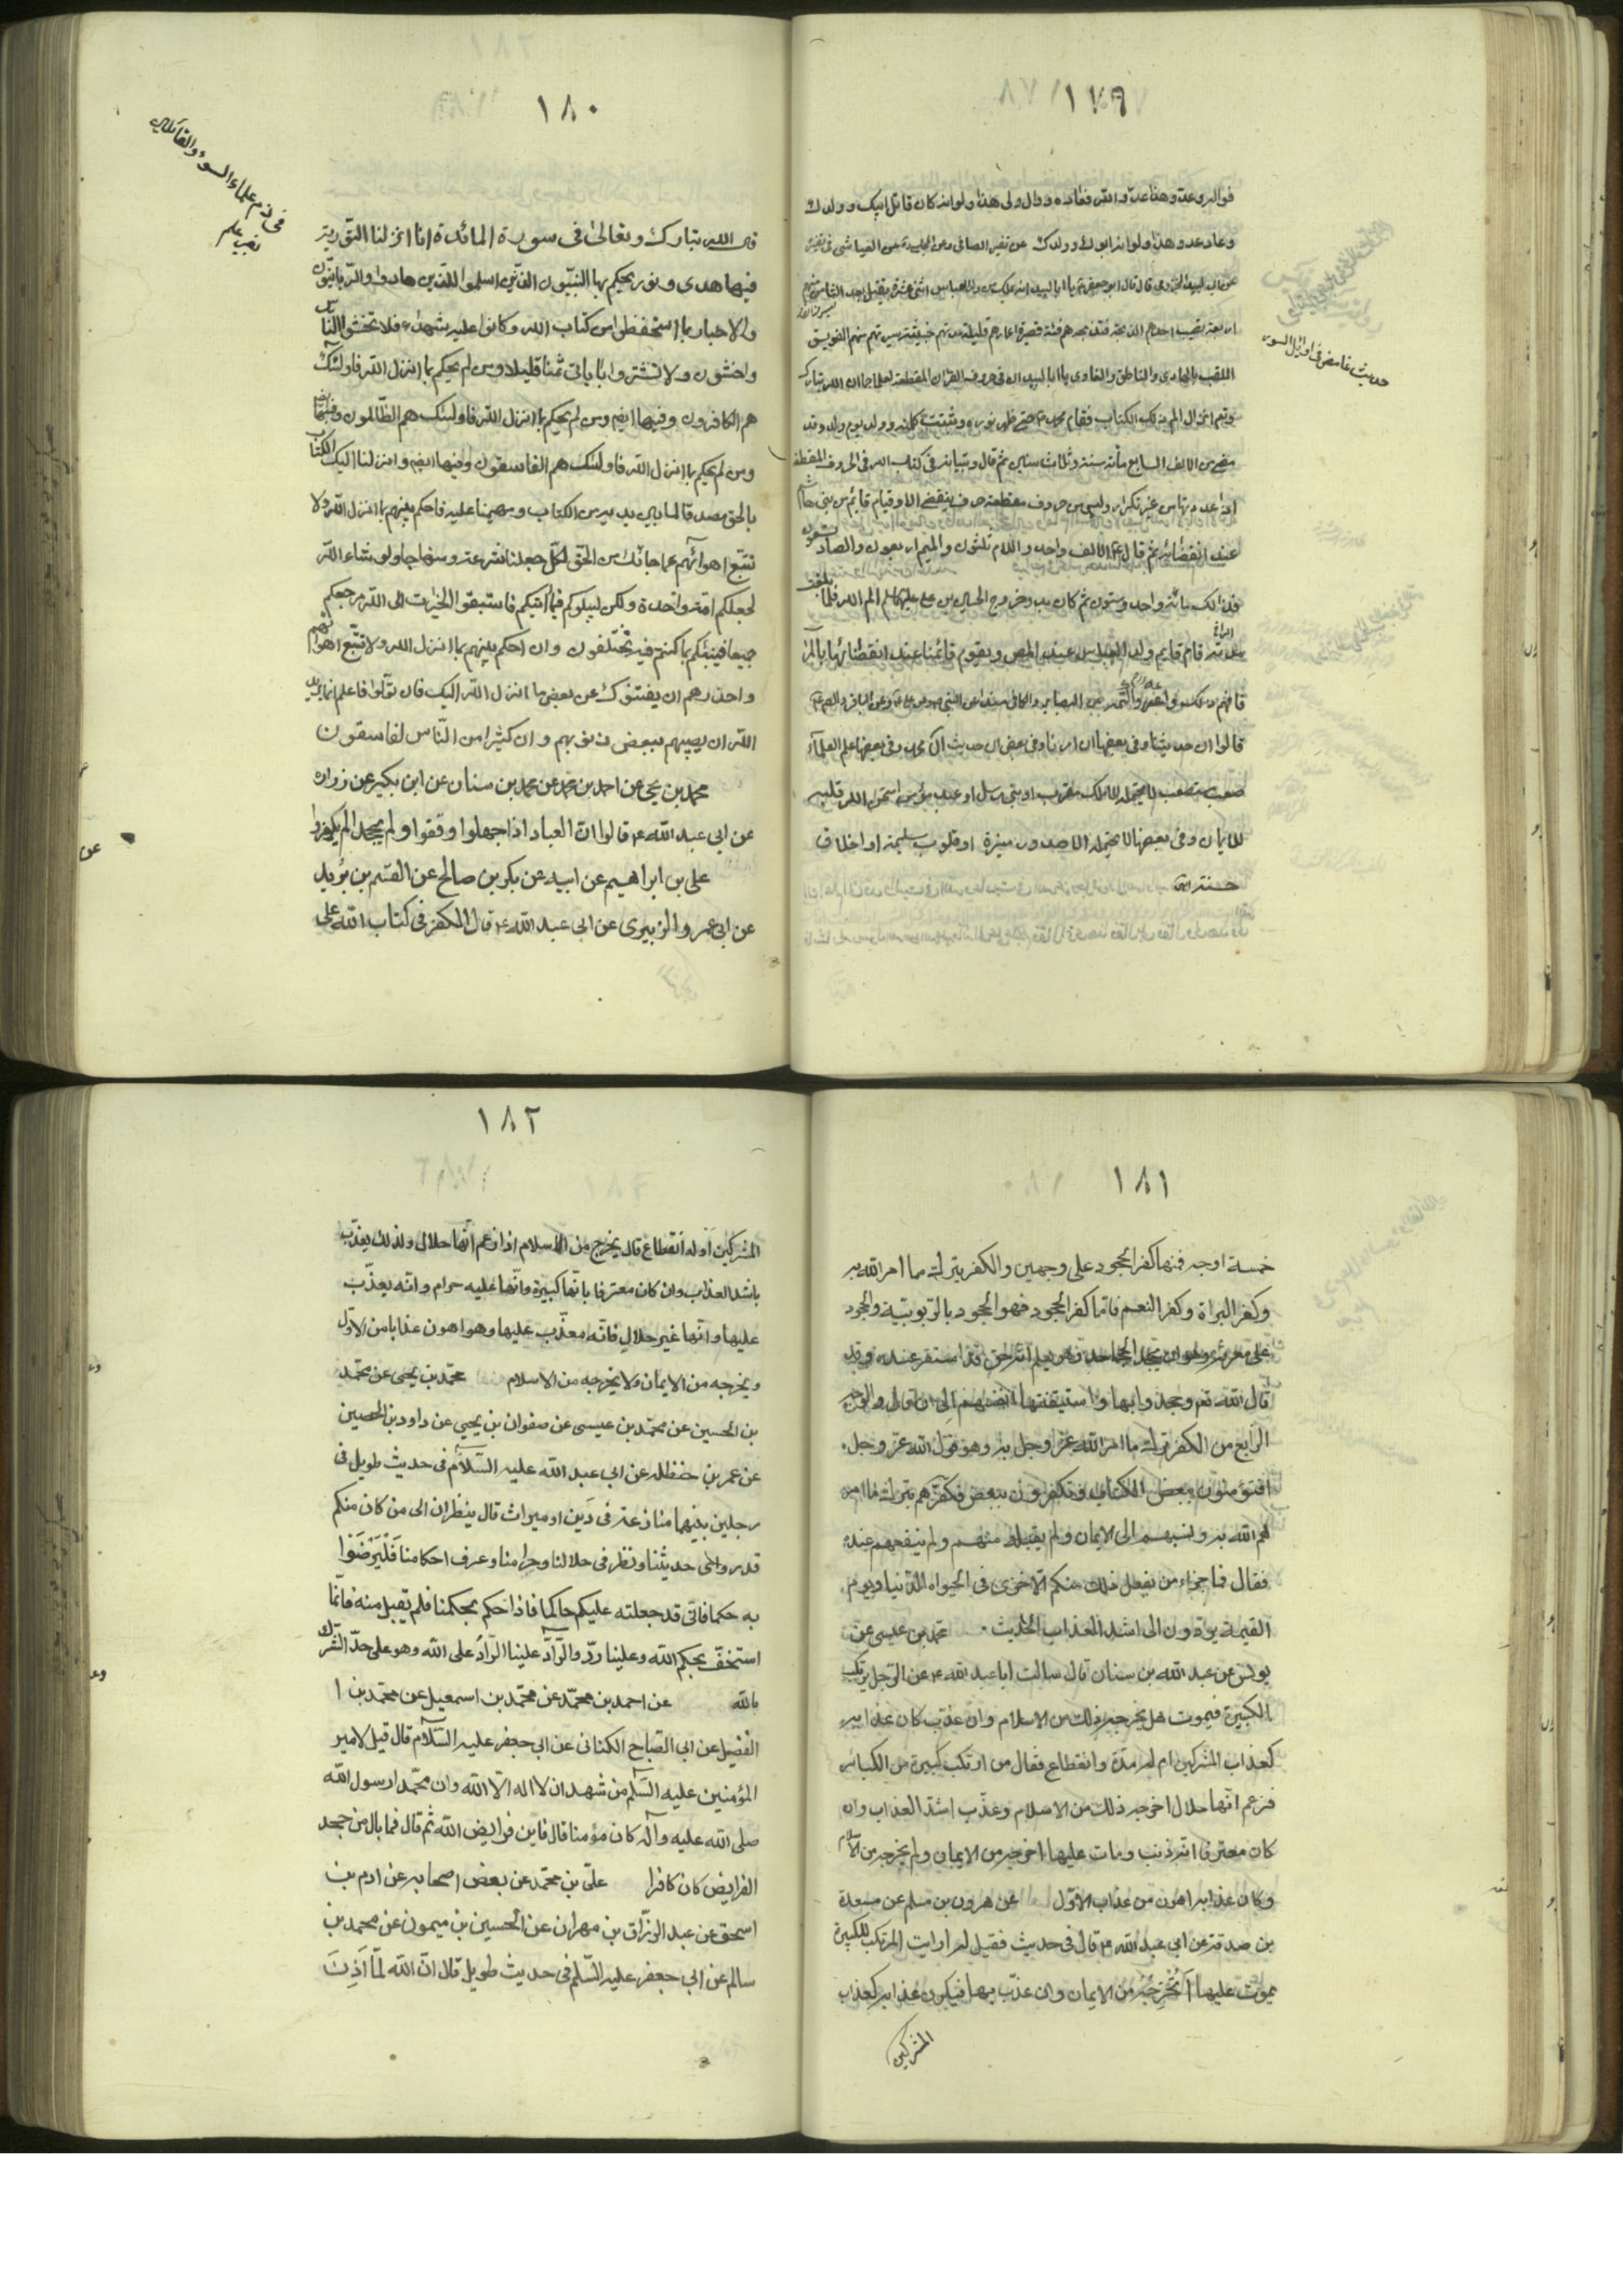 ١٧٩
حديث غامض فی اوائل السور
فوال وعده وهذا عدو الله فعاده ووال ولی هذا ولو انه كان قاتل ابيك وولدك
وعاد عدو هذا ولو انه ابوك وولدك عن تفسير الصافی وعن العياشی
قال قال ابو جعفر يا ابا لبيد انه يملك من ولد العباس اثنی عشر يقتل بعد الثامن منهم
اربعة تصيب احدهم الذبحة فتذبحه هم فئة قصيرة اعمارهم قليلة مدتهم خبيثة سيرتهم منهم الفويسق
الملقب بالهادی والناطق والغاوی يا ابا لبيد ان فی حروف القران المقطعة لعلما جما ان الله تبارك
وتعالی انزل الم ذلك الكتاب فقام محمد حتی ظهر نوره وثبتت كلمته وولد يوم ولد وقد
مضی من الالف السابع مأئة سنة وثلاث سنين ثم قال وتبيانه فی كتاب الله فی الحروف المقطعة
اذا عددتها من غير تكرار وليس من حروف مقطعة حرف ينقضی الا وقيام قايم من بنی هاشم
عند انقضائه ثم قال الالف واحد واللام ثلثون والميم اربعون والصاد تسعون
فذلك مائة واحد وستون ثم كان بدو خروج الحسين بن علی الم الله فلما بلغت
مدته قام قايم ولد العباس عند المص ويقوم قائمنا عند انقضائها بالر
فافهم ذلك وعه واكتمه
قالوا ان حديثنا وفی بعضها ان امرنا وفی بعض ان حديث ال محمد وفی بعضها علم العلمآء
صعب مستصعب لا يحتمله الا ملك مقرب او نبی مرسل او عبد مؤمن امتحن الله قلبه
للايمان وفی بعضها لا يحتمله الا صدور منيرة او قلوب سليمة او اخلاق
حسنة
١٨٠
فی ذم علماء السوء والقائلين بغير علم
قال الله تبارك وتعالی فی سورة المائدة انا انزلنا التورية
فيها هدی ونور يحكم بها النبيّون الذين اسلموا للذين هادوا والرّبانيّون
والاحبار بما استحفظوا من كتاب الله وكانوا عليه شهداء فلا تخشوا الناس
واخشون ولا تشتروا بآياتی ثمنا قليلا ومن لم يحكم بما انزل الله فاولئك
هم الكافرون وفيها ايضا ومن لم يحكم بما انزل الله فاولئك هم الظّالمون وفيها ايضا
ومن لم يحكم بما انزل الله فاولئك هم الفاسقون وفيها ايضا وانزلنا اليك الكتاب
بالحق مصدقا لما بين يديه من الكتاب ومهيمنا عليه فاحكم بينهم بما انزل الله ولا
تتبع اهوائهم عما جائك من الحق لكل جعلنا منكم شرعة ومنهاجا ولو شاء الله
لجعلكم امة واحدة ولكن ليبلوكم فيما آتيكم فاستبقوا الخيرات الی الله مرجعكم
جميعا فينبئكم بما كنتم فيه تختلفون وان احكم بينهم بما انزل الله ولا تتبع اهوائهم
واحذرهم ان يفتنوك عن بعض ما انزل الله اليك فان تولّوا فاعلم انما يريد
الله ان يصيبهم ببعض ذنوبهم وان كثيرا من النّاس لفاسقون
محمد بن يحی عن احمد بن محمد عن محمد بن سنان عن ابن بكير عن زراره
عن ابی عبد الله ع قال لو ان العباد اذا جهلوا وقفوا ولم يجحدوا لم يكفروا
علی بن ابراهيم عن ابيه عن بكر بن صالح عن القسم بن بُريد
عن ابی عمرو الزبيری عن ابی عبد الله ع قال الكفر فی كتاب الله علی
عن
١٨١
خمسة اوجه فمنها كفر الجحود علی وجهين والكفر بترك ما امر الله به
وكفر البراة وكفر النعم فامّا كفر الجحود فهو الجحود بالربوبيّة والجحود
علی معرفته وهو ان يجحد الجاحد وهو يعلم انّه حق قد استقر عنده وقد
قال الله تعم وجحدوا بها واستيقنتها انفسهم الی ان قال والوجه
الرابع من الكفر ترك ما امر الله عزّ وجل به وهو قول الله عزّ وجل.
افتؤمنون ببعض الكتاب وتكفرون ببعض فكفّرهم بترك ما امر
الله به ونسبهم الی الايمان ولم يقبله منهم ولم ينفعهم عنده
فقال فما جزاء من يفعل ذلك منكم الا خزی فی الحيواة الدّنيا ويوم
القيمة يردون الی اشدّ العذاب الحديث . محمد بن عيسی عن
يونس عن عبد الله بن سنان قال سالت ابا عبد الله ع عن الرّجل يرتكب
الكبيرة فيموت هل يخرجه ذلك من الاسلام وان عذب كان عذابه
كعذاب المشركين ام له مدّة وانقطاع فقال من ارتكب كبيرة من الكبائر
فزعم انّها حلال اخرجه ذلك من الاسلام وعذّب اشدّ العذاب وان
كان معترفا انّه ذنب ومات عليها اخرجه من الايمان ولم يخرجه من الاسلام
وكان عذابه اهون من عذاب الاوّل عن هرون بن مسلم عن مسعدة
بن صدقة عن ابی عبد الله ع قال فی حديث فقيل له ارايت المرتكب للكبيرة
يموت عليها أتُخرجُه من الايمان وان عذّب بها فيكون عذابه كعذاب
المشركين
١٨٢
المشركين أو له انقطاع قال يخرج من الاسلام اذا زعم انّها حلال ولذلك يعذّب
باشد العذاب وان كان معترفا بانّها كبيرة وانّها عليه حرام وانّه يعذّب
عليها وانّها غير حلال فانّه معذّب عليها وهو اهون عذابا من الاوّل
ويخرجه من الايمان ولا يخرجه من الاسلام محمّد بن يحيی عن محمّد
بن الحسين عن محمّد بن عيسی عن صفوان بن يحيی عن داود بن الحصين
عن عمر بن حنظله عن ابی عبد الله عليه السّلام فی حديث طويل فی
رجلين بينهما منازعة فی دَين او ميراث قال ينظران الی من كان منكم
قد روی حديثنا ونظر فی حلالنا وحرامنا وعرف احكامنا فَلْيَرْضَوْا
به حكما فانّی قد جعلته عليكم حاكما فاذا حكم بحكمنا فلم يقبل منه فانّما
استخفّ بحكم الله وعلينا ردّ والرّادّ علينا الرّادّ علی الله وهو علی حدّ الشرك
بالله عن احمد بن محمّد عن محمّد بن اسمعيل عن محمّد بن ا
الفضيل عن ابی الصّباح الكنانی عن ابی جعفر عليه السّلام قال قيل لامير
المؤمنين عليه السّلم من شهد ان لا اله الّا الله وان محمّدا رسول الله
صلی الله عليه وآله كان مؤمنا قال فاين فرايض الله ثم قال فما بال من جحد
الفرايض كان كافرا علیّ بن محمّد عن بعض اصحابه عن ادم بن
اسحق عن عبد الرزّاق بن مهران عن الحسين بن ميمون عن محمد بن
سالم عن ابی جعفر عليه السّلم فی حديث طويل قال انّ الله لمّا اَذِنَ